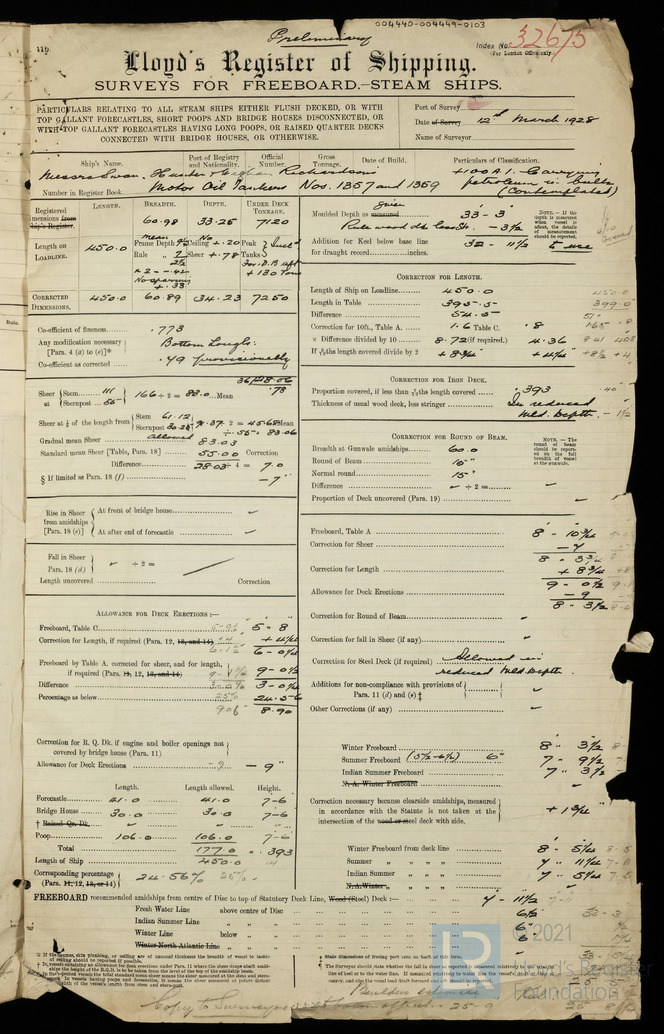 004440-004449-0103
Preliminary
Index No. 32615
(For London Office only)
11b
Lloyd's Register of Shipping.
SURVEYS FOR FREEBOARD.—STEAM SHIPS.
PARTICULARS RELATING TO ALL STEAM SHIPS EITHER FLUSH DECKED, OR WITH
TOP GALLANT FORECASTLES, SHORT POOPS AND BRIDGE HOUSES DISCONNECTED, OR
WITH TOP GALLANT FORECASTLES HAVING LONG POOPS, OR RAISED QUARTER DECKS
CONNECTED WITH BRIDGE HOUSES, OR OTHERWISE.
Port of Survey
Date of Survey 12th March 1928
Name of Surveyor
Ship's Name. Port of Registry and Nationality. Official Number. Gross Tonnage. Date of Build. Particulars of Classification.
Messrs Swan, Hunter & Wigham Richardsons
Number in Register Book Motor Oil Tankers Nos. 1357 and 1359
+100 A1. Carrying petroleum in bulk (Contemplated)
LENGTH. BREADTH. DEPTH. UNDER DECK TONNAGE.
Registered dimensions from Ship's Register. 60.98 33.25 7120
Length on LOADLINE. 450.0
Frame Depth Ceiling +.20 Peak Tanks
Rule Sheer +.78
+130 Tons
CORRECTED DIMENSIONS. 450.0 60.89 34.23 7250
Moulded Depth as measured 33-3
- 3½
Addition for Keel below base line for draught record inches. 32 - 11½
NOTE.—If the depth is measured when vessel is afloat, the details of measurement should be reported.
Co-efficient of fineness .773
Any modification necessary [Para. 4 (a) to (e)]*
Bottom Longls:
Co-efficient as corrected .79 provisionally
Sheer at Stem 111 Sternpost 55 166÷2 = 83.0 Mean
Sheer at ⅛ of the length from Stem 61.12 Sternpost 30.25
Gradual mean Sheer Allowed 83.03
Standard mean Sheer [Table, Para. 18] 55.00 Correction
Difference 28.03÷4 = 7.0
§ If limited as Para. 18 (f) — 7"
Rise in Sheer from amidships [Para. 18 (e)]
At front of bridge house
At after end of forecastle
Fall in Sheer Para. 18 (d) ÷2 =
Length uncovered Correction
CORRECTION FOR LENGTH.
Length of Ship on Loadline 450.0
Length in Table 395.5
Difference 54.5
Correction for 10ft., Table A. 1.6 Table C. .8
× Difference divided by 10 8.72 (if required.) 4.36
If 6/10ths length covered divide by 2 + 8¾ + 4¼
CORRECTION FOR IRON DECK.
Proportion covered, if less than 7/10ths length covered .393
Thickness of usual wood deck, less stringer In reduced Mld. Depth.
CORRECTION FOR ROUND OF BEAM.
Breadth at Gunwale amidships 60.0
Round of Beam 15"
Normal round 15"
Difference ÷2 =
Proportion of Deck uncovered (Para. 19)
NOTE.—The round of beam should be reported on the full breadth of vessel at the gunwale.
ALLOWANCE FOR DECK ERECTIONS:—
Freeboard, Table C. 5" 8
Correction for Length, if required (Para. 12, 13, and 14) + 4¼
6 - 0¼
Freeboard by Table A. corrected for sheer, and for length, if required (Para. 11, 12, 13, and 14) 9 - 0½
Difference 3 - 0¼
Percentage as below 24.56
8.90
Correction for R. Q. Dk. if engine and boiler openings not covered by bridge house (Para. 11)
Allowance for Deck Erections — 9"
Length. Length allowed. Height.
Forecastle 41.0 41.0 7-6
Bridge House 30.0 30.0 7-6
† Raised Qr. Dk.
Poop 106.0 106.0 7-6
Total 177.0 .393
Length of Ship 450.0
Corresponding percentage (Para. 11, 12, 13, or 14) 24.56%
Freeboard, Table A 8 - 10¾
Correction for Sheer — 7
8 - 3¾
Correction for Length + 8¾
9 - 0½
Allowance for Deck Erections — 9
8 - 3½
Correction for Round of Beam
Correction for fall in Sheer (if any)
Correction for Steel Deck (if required) Allowed in reduced Mld Depth.
Additions for non-compliance with provisions of Para. 11 (d) and (e) ‡
Other Corrections (if any)
Winter Freeboard 8 " 3½
Summer Freeboard 6" 7 " 9½
Indian Summer Freeboard 7 " 3½
N. A. Winter Freeboard
Correction necessary because clearside amidships, measured in accordance with the Statute is not taken at the intersection of the wood or steel deck with side. + 1¾
Winter Freeboard from deck line 8 - 5¼
Summer " " " " 7 " 11½
Indian Summer " " " " 7 " 5¼
N.A. Winter " " " "
FREEBOARD recommended amidships from centre of Disc to top of Statutory Deck Line, Wood (Steel) Deck:— 7 - 11½
Fresh Water Line above centre of Disc 6½
Indian Summer Line " " 6"
Winter Line below " 6"
Winter North Atlantic Line " "
© 2021
Lloyd's Register
Foundation